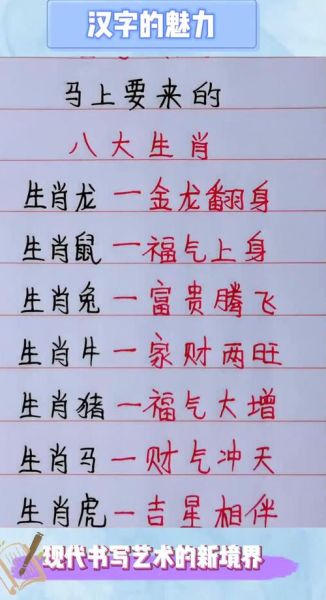 汉字的魅力
马上要来的
八大生肖
生肖龙一金龙翻身
生肖鼠一福气上身
生肖兔一富贵腾飞
生肖牛一家财两旺
生肖猪一福气大增
生肖马一财气冲天
生肖虎一吉星相伴
现代书写艺术的新境界